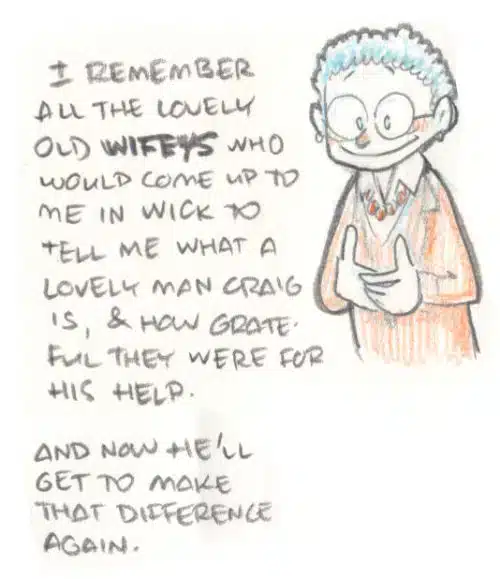 I REMEMBER
ALL THE LOVELY
OLD WIFEYS WHO
WOULD COME UP TO
ME IN WICK TO
TELL ME WHAT A
LOVELY MAN CRAIG
IS, & HOW GRATE-
FUL THEY WERE FOR
HIS HELP.
AND NOW HE'LL
GET TO MAKE
THAT DIFFERENCE
AGAIN.